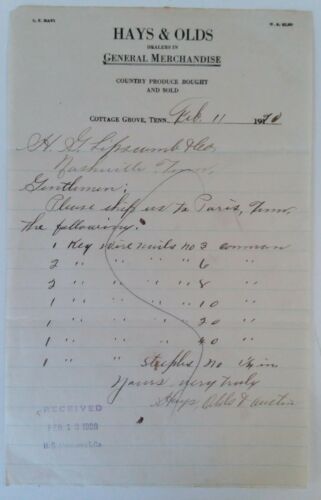 L. F. HAYS W. A. OLDS
HAYS & OLDS
DEALERS IN
GENERAL MERCHANDISE
COUNTRY PRODUCE BOUGHT
AND SOLD
COTTAGE GROVE, TENN. Feb. 11 1920
H. G. Lipscomb & Co.
Nashville Tenn.
Gentlemen:
Please ship us to Paris, Tenn.
the following:
1 Keg wire nails no 3 common
2 " " " " 6 "
2 " " " " 8 "
1 " " " " 10 "
1 " " " " 20 "
1 " " " " 40 "
1 " " staples no in
Yours very truly
Hays Olds & Austin
RECEIVED
FEB 13
H. G. & Co.